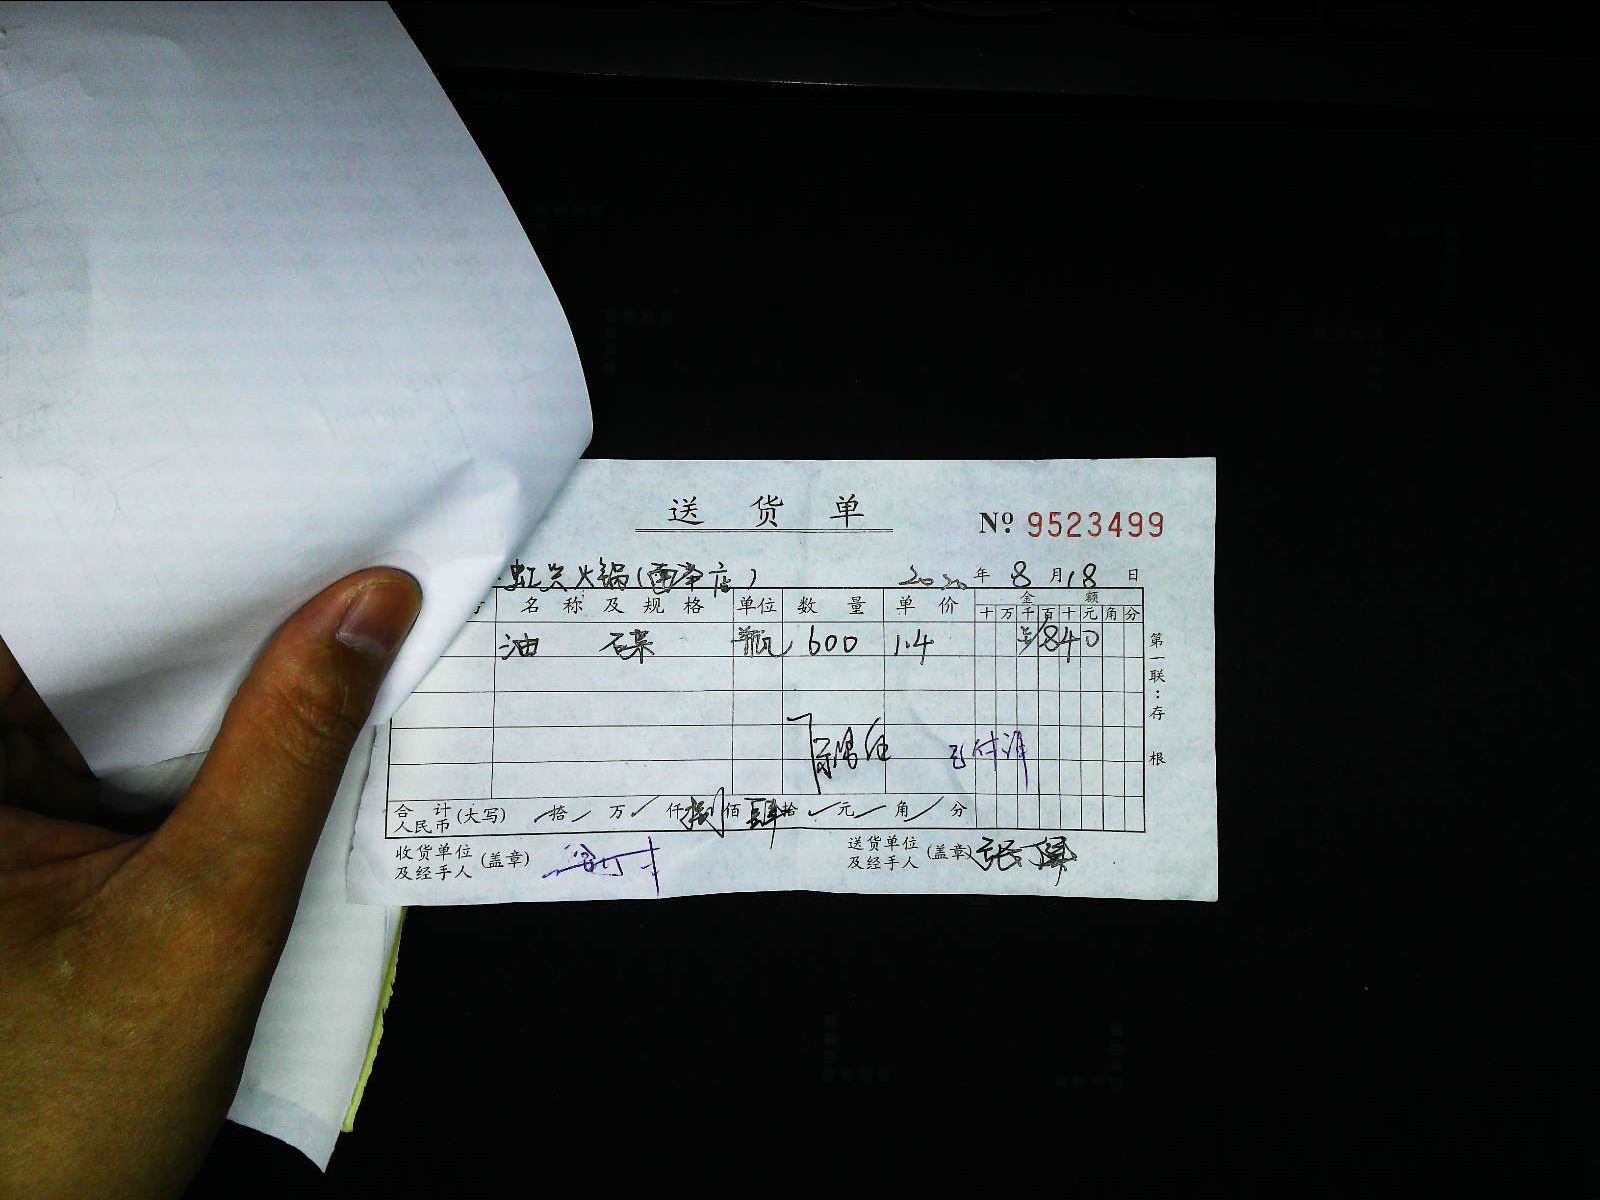 送货单
№ 9523499
虹兴火锅(西 店) 2020年8月18日
名称及规格 单位 数量 单价 金额
十万千百十元角分
油碟 瓶 600 1.4 840
第一联:存根
已付
合计人民币(大写) 拾 万 仟捌佰肆拾 元 角 分
收货单位及经手人(盖章)
送货单位及经手人(盖章) 张